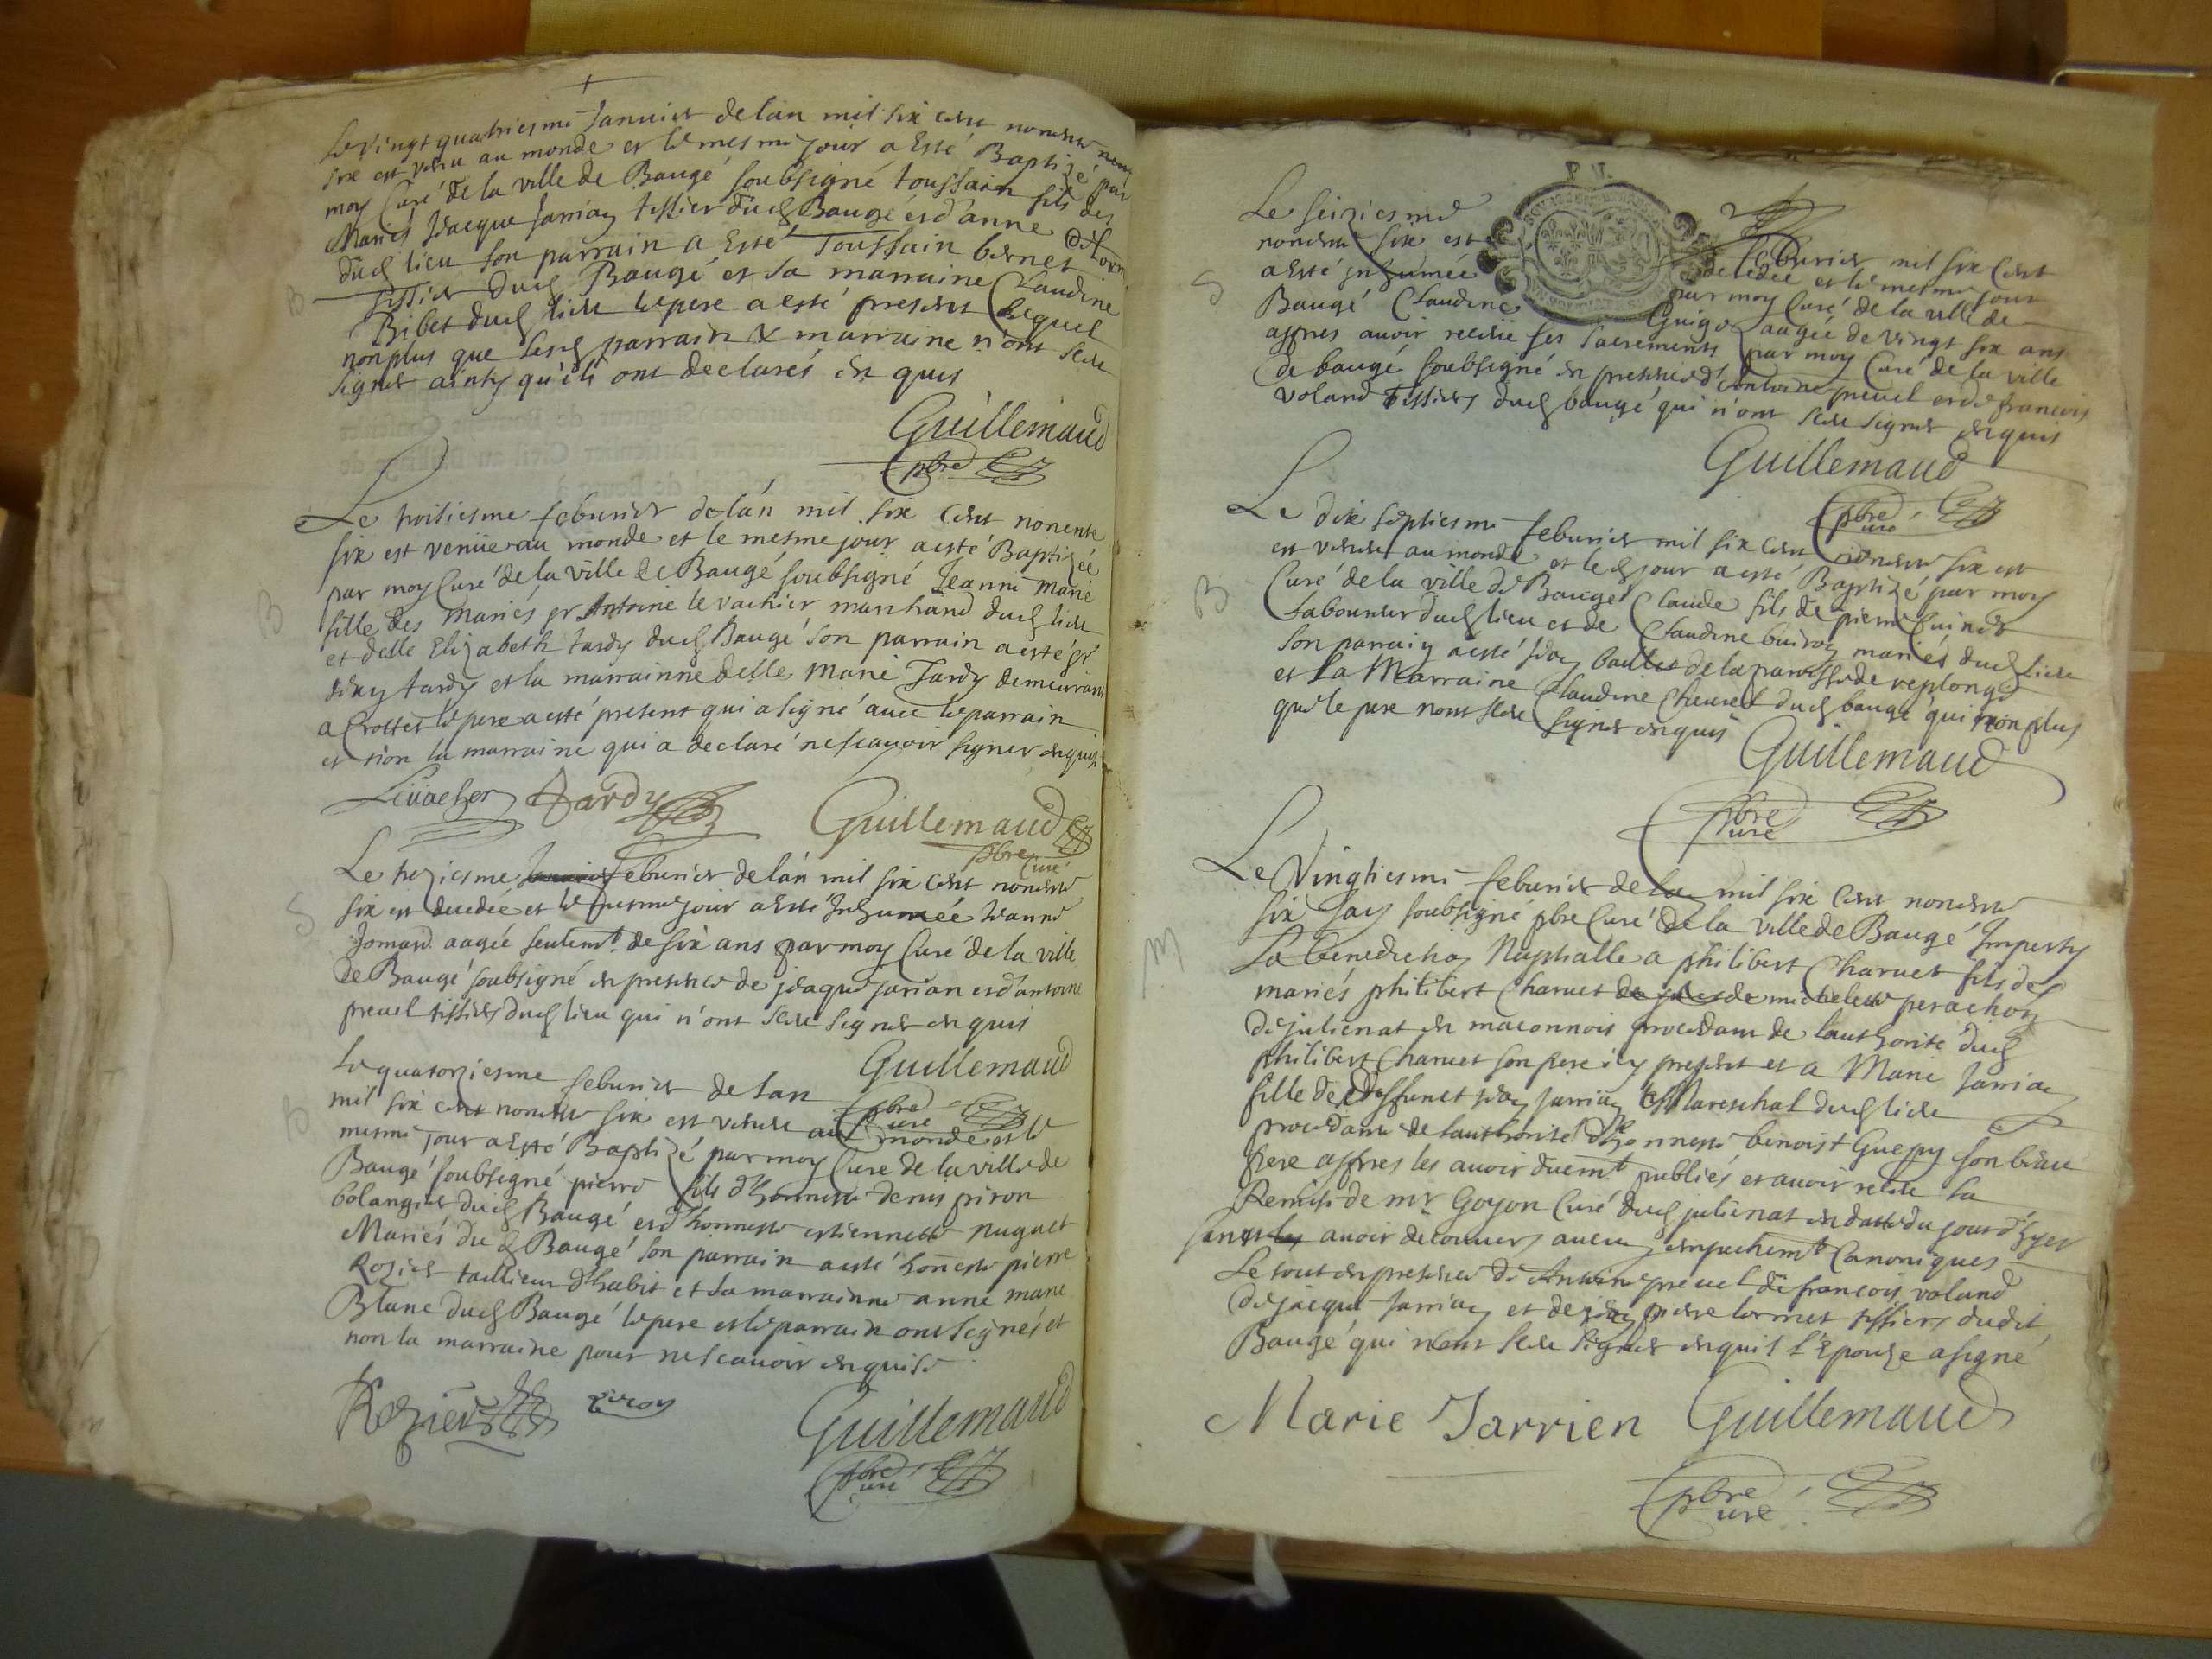 Le vingt quatriesme Januier de lan mil six cent nonente
six est venu au monde et le mesme jour a Esté Baptizé par
moy Curé de la ville de Baugé soubsigné toussain fils des
Mariés Jacque Jarriay tissier dud Baugé et d'anne
dud lieu son parrain a Esté Toussain bernet
tissier dud Baugé et sa marraine Claudine
Bibet dud lieu le pere a esté present Lequel
non plus que lesd parrain & marraine n'ont sceu
signer ainsy qu'ils ont declarés en quis
Guillemaud
pbre Curé
B
Le troisiesme feburier de lán mil six cent nonente
six est venüe au monde et le mesme jour a esté Baptizée
par moy Curé de la ville de Baugé soubsigné Jeanne Marie
fille des Mariés sr Antoine le vachier marchand dud lieu
et delle Elizabeth tardy dud Baugé son parrain a esté sr
tardy et la marrainne delle Marie Tardy demeurant
a Crottet le pere a esté present qui a signé auec le parrain
et non la marraine qui a declaré ne scauoir signer enquis
Leuacher Tardy Guillemaud
pbre Curé
B
Le treziesme feburier de lán mil six cent nonente
six est decedée et le mesme jour a Esté Inhumée Jeanne
Jomard aagée seulemt de six ans par moy Curé de la ville
de Baugé soubsigné en presence de jacque jarian et d'antoine
preuel tissiers dud lieu qui n'ont sceu signer enquis
Guillemaud
pbre Curé
S
Le quatorziesme feburier de lan
mil six cent nonente six est venu au monde et le
mesme jour a Esté Baptizé par moy Curé de la ville de
Baugé soubsigné pierre fils d'honneste denis piron
bolangier dud Baugé et d'honneste estiennette puguet
Mariés dud Baugé son parrain a esté honeste pierre
Rozier taillieur d'habit et sa marrainne anne marie
Blanc dud Baugé le pere et le parrain ont signés et
non la marraine pour ne scauoir enquise
Rozier piron
Guillemaud
pbre Curé
B
Le seiziesme feburier mil six cent
nonente six est decedée et le mesme jour
a Esté inhumée par moy Curé de la ville de
Baugé Claudine Guigo aagée de vingt six ans
appres auoir receue ses sacrements par moy Curé de la ville
de baugé soubsigné en presence d'Antoine preuel et de francois
voland tissiers dud baugé qui n'ont sceu signer enquis
Guillemaud
pbre Curé
S
Le dix septiesme feburier mil six cent nonente six est
est venu au monde et led jour a esté Baptizé par moy
Curé de la ville de Baugé Claude fils de pierre Cuinet
Labourer dud lieu et de Claudine buiron mariés dud lieu
son parrain a esté baillet de la paroisse de replonge
et la Marraine Claudine Cheurel dud baugé qui non plus
que le pere nont sceu signer enquis
Guillemaud
pbre Curé
B
Le Vingtiesme feburier de la mil six cent nonente
six Jay soubsigné pbre Curé de la ville de Baugé Imparty
La benediction Nupthalle a philibert Charuet fils des
mariés philibert Charuet de michelette perachon
de julienat en maconnois procedant de l'authorité dud
philibert Charuet son pere icy present et a Marie Jarriay
fille de deffunct Jarriay Mareschal dud lieu
procedant de l'authorité d'honneste benoist Guepy son beau
frere appres les auoir duemt publiés et auoir receu la
Remise de mr Goyon Curé dud julienat en datte du jour d'hyer
sans auoir decouuers aucun empechemt Canoniques
Le tout en presence de Antoine preuel de francois voland
de jacque Jarriay et de pierre lornet tissiers dudit
Baugé qui n'ont sceu signer enquis l'Epouze a signé
Marie Jarrien Guillemaud
pbre Curé
M